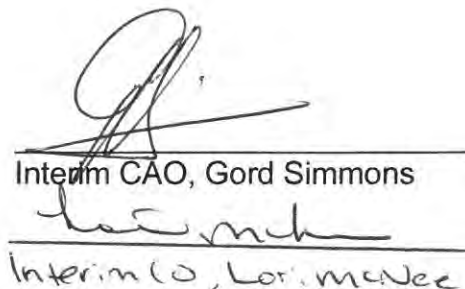 Interim CAO, Gord Simmons
Interim CO, Lori McNee